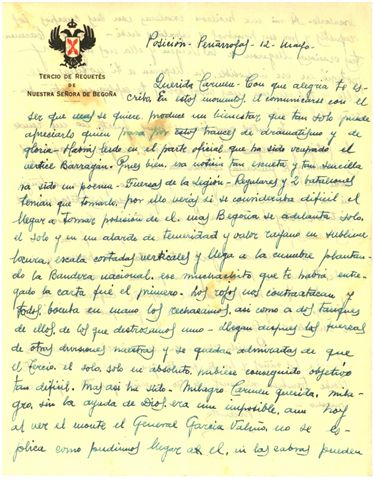 Posición - Peñarroya - 12 - Mayo -
TERCIO DE REQUETÉS
DE
NUESTRA SEÑORA DE BEGOÑA
Querida Carmen - Con que alegría te es-
cribo. En estos momentos el comunicarse con el
ser que mas se quiere produce un bienestar, que tan solo puede
apreciarlo quien pasa por estos trances de dramatismo y de
gloria - Habrás leido en el parte oficial que ha sido ocupado el
vértice Barragán. Pues bien, esa noticia tan escueta y tan sencilla
ha sido un poema - Fuerzas de la Legión - Regulares y 2 batallones
tenian que tomarlo, por ello verás si se consideraba difícil el
llegar a tomar posición de el. mas Begoña se adelanta solo,
el solo y en un alarde de temeridad y valor rayano en sublime
locura, escala cortados verticales y llega a la cumbre plantan-
do la Bandera nacional. ese muchachito que te habrá entre-
gado la carta fué el primero. Los rojos nos contraatacan y
todos, bomba en mano los rechazamos, así como a dos tanques
de ellos, de los que destrozamos uno - llegan despues las fuerzas
de otras divisiones nuestras y se quedan admiradas de que
el Tercio. el solo, solo en absoluto, hubiera conseguido objetivo
tan difícil. Mas así ha sido. Milagro Carmen querida, mila-
gro, sin la ayuda de Dios, era un imposible, aun hoy
al ver el monte el General García Valiño, no se ex-
plica como pudimos llegar a el, ni las cabras pueden